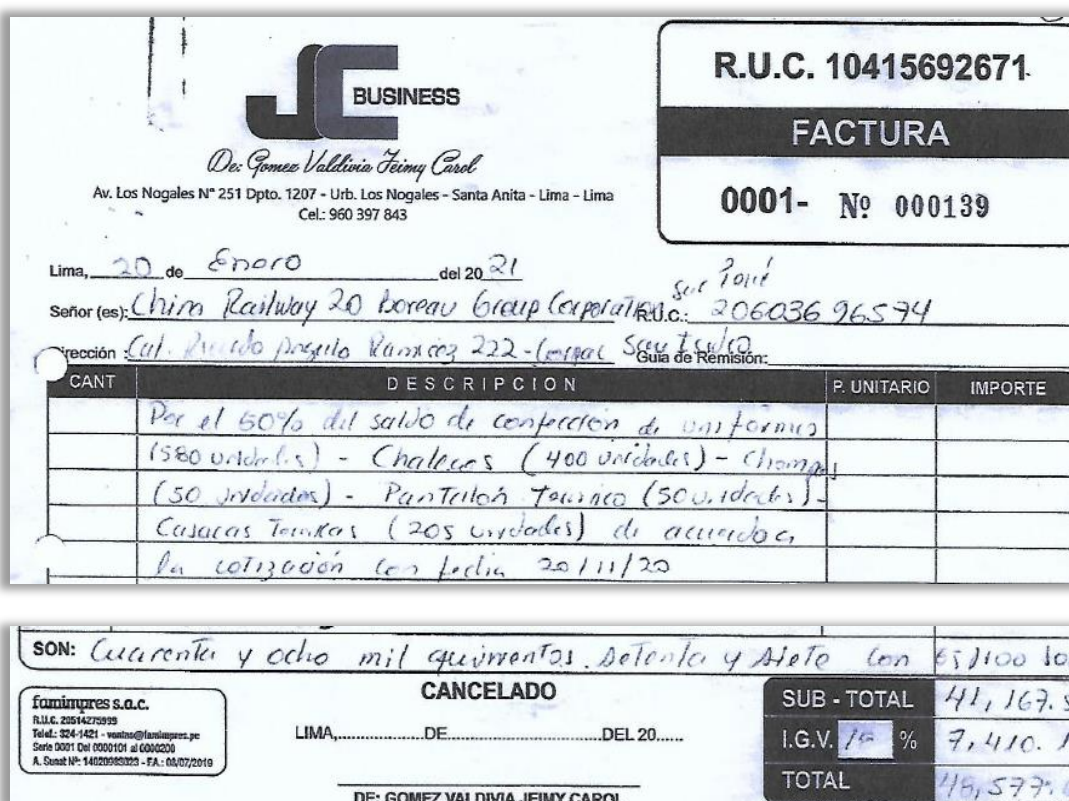 JC BUSINESS
De: Gomez Valdivia Jeimy Carol
Av. Los Nogales N° 251 Dpto. 1207 - Urb. Los Nogales - Santa Anita - Lima - Lima
Cel.: 960 397 843
R.U.C. 10415692671
FACTURA
0001- Nº 000139
Lima, 20 de Enero del 20 21
Señor (es): China Railway 20 Boreau Group Corporation Suc Perú R.U.C.: 20603696574
Dirección : Cal. Ricardo Angulo Ramirez 222 - Corpac San Isidro Guia de Remisión:
CANT DESCRIPCION P. UNITARIO IMPORTE
Por el 50% del saldo de confección de uniformes
(580 unidades) - Chalecos (400 unidades) - Chompas
(50 unidades) - Pantalón Termico (50 unidades) -
Casacas Termicas (205 unidades) de acuerdo a
la cotización con fecha 20/11/20
SON: Cuarenta y ocho mil quinientos Setenta y Siete con 65/100
famimpres s.a.c.
R.U.C. 20514275999
Telef.: 324-1421 -
Serie 0001 Del 0000101 al 0000200
A. Sunat Nº: 14020983023 - F.A.: 08/07/2019
CANCELADO
LIMA,................DE..............................DEL 20......
DE: GOMEZ VALDIVIA JEIMY CAROL
SUB - TOTAL 41,167.
I.G.V. 18 % 7,410.
TOTAL 48,577.